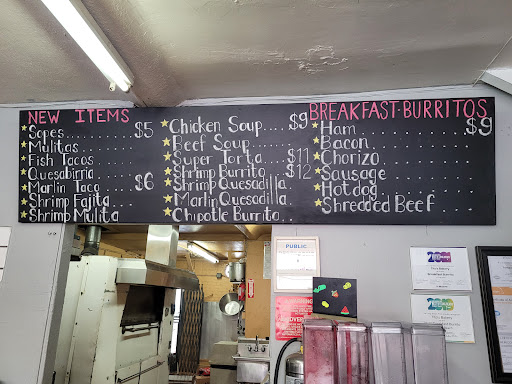 NEW ITEMS
Sopes......... $5
Mulitas
Fish Tacos
Quesabirria
Marlin Taco $6
Shrimp Fajita
Shrimp Mulita
Chicken Soup.... $9
Beef Soup
Super Torta $11
Shrimp Burrito $12
Shrimp Quesadilla
Marlin Quesadilla
Chipotle Burrito
BREAKFAST BURRITOS
Ham $9
Bacon
Chorizo
Sausage
Hotdog
Shredded Beef
PUBLIC